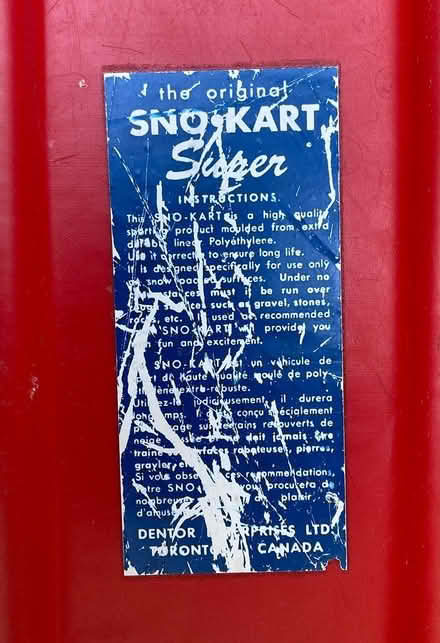 the original
SNO-KART
Super
INSTRUCTIONS
This SNO-KART is a high quality
product moulded from extra
linear Polyethylene.
Use it correctly to ensure long life.
is designed specifically for use only
snow packed surfaces. Under no
must it be run over
such as gravel, stones,
rocks, etc. used as recommended
SNO-KART will provide you
fun and excitement.
SNO-KART est un véhicule de
de haute qualité moulé de poly-
extra-robuste.
Utilisez-le judicieusement, il durera
longtemps. Il conçu spécialement
sur terrains recouverts de
neige doit jamais être
surfaces raboteuses, pierres,
gravier, etc.
Si vous observez ces recommendations,
votre SNO vous procurera de
nombreuses de plaisir
DENTOR ENTERPRISES LTD.
TORONTO CANADA